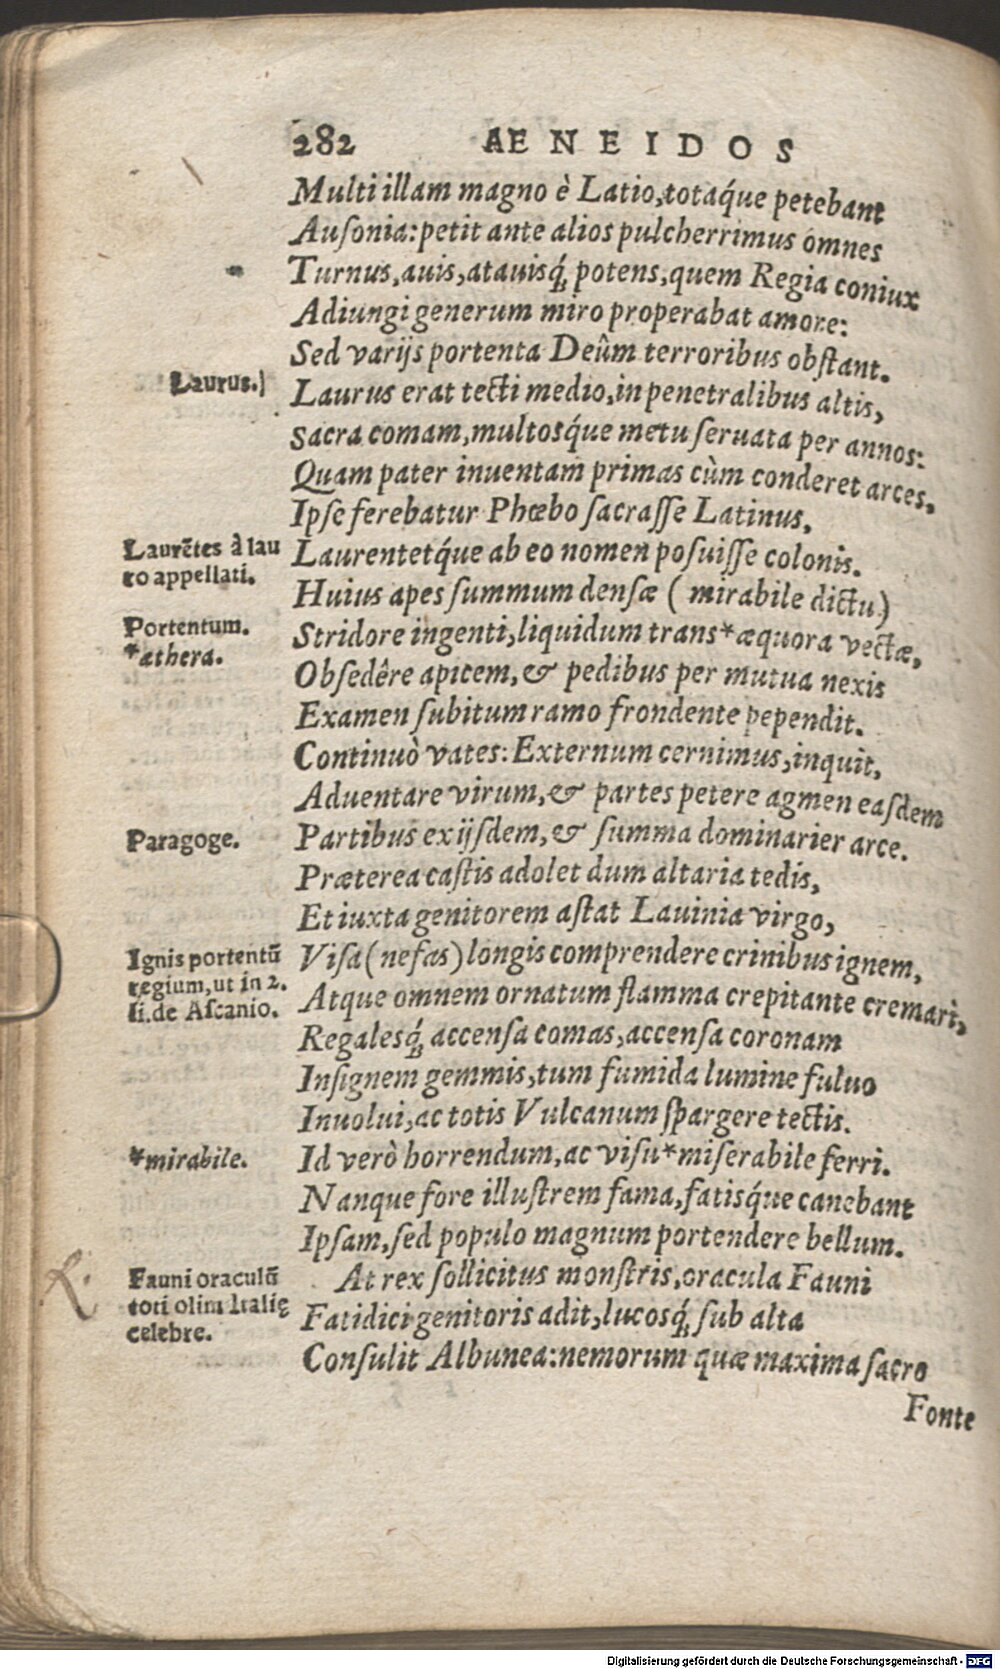 282 AENEIDOS
Multi illam magno è Latio, totaq́ue petebant
Auſonia: petit ante alios pulcherrimus omnes
Turnus, auis, atauisq́; potens, quem Regia coniux
Adiungi generum miro properabat amore:
Sed varijs portenta Deûm terroribus obſtant.
Laurus.]
Laurus erat tecti medio, in penetralibus altis,
Sacra comam, multosq́ue metu ſeruata per annos:
Quam pater inuentam primas cùm conderet arces,
Ipſe ferebatur Phœbo ſacraſſe Latinus,
Laurẽtes à lau
ro appellati.
Laurentetq́ue ab eo nomen poſuiſſe colonis.
Huius apes ſummum denſæ ( mirabile dictu)
Portentum.
*æthera.
Stridore ingenti, liquidum trans*æquora vectæ,
Obſedêre apicem, & pedibus per mutua nexis
Examen ſubitum ramo frondente pependit.
Continuò vates: Externum cernimus, inquit,
Aduentare virum, & partes petere agmen eaſdem
Paragoge.
Partibus ex ijſdem, & ſumma dominarier arce.
Præterea caſtis adolet dum altaria tedis,
Et iuxta genitorem aſtat Lauinia virgo,
Ignis portentũ
regium, ut in 2.
li. de Aſcanio.
Viſa (nefas) longis comprendere crinibus ignem,
Atque omnem ornatum flamma crepitante cremari,
Regalesq́; accenſa comas, accenſa coronam
Inſignem gemmis, tum fumida lumine fuluo
Inuolui, ac totis Vulcanum ſpargere tectis.
*mirabile.
Id verò horrendum, ac viſu*miſerabile ferri.
Nanque fore illuſtrem fama, fatisq́ue canebant
Ipſam, ſed populo magnum portendere bellum.
Fauni oraculũ
toti olim Italię
celebre.
At rex ſollicitus monſtris, oracula Fauni
Fatidici genitoris adit, lucosq́; ſub alta
Conſulit Albunea: nemorum quæ maxima ſacro
Fonte
Digitalisierung gefördert durch die Deutsche Forschungsgemeinschaft - DFG